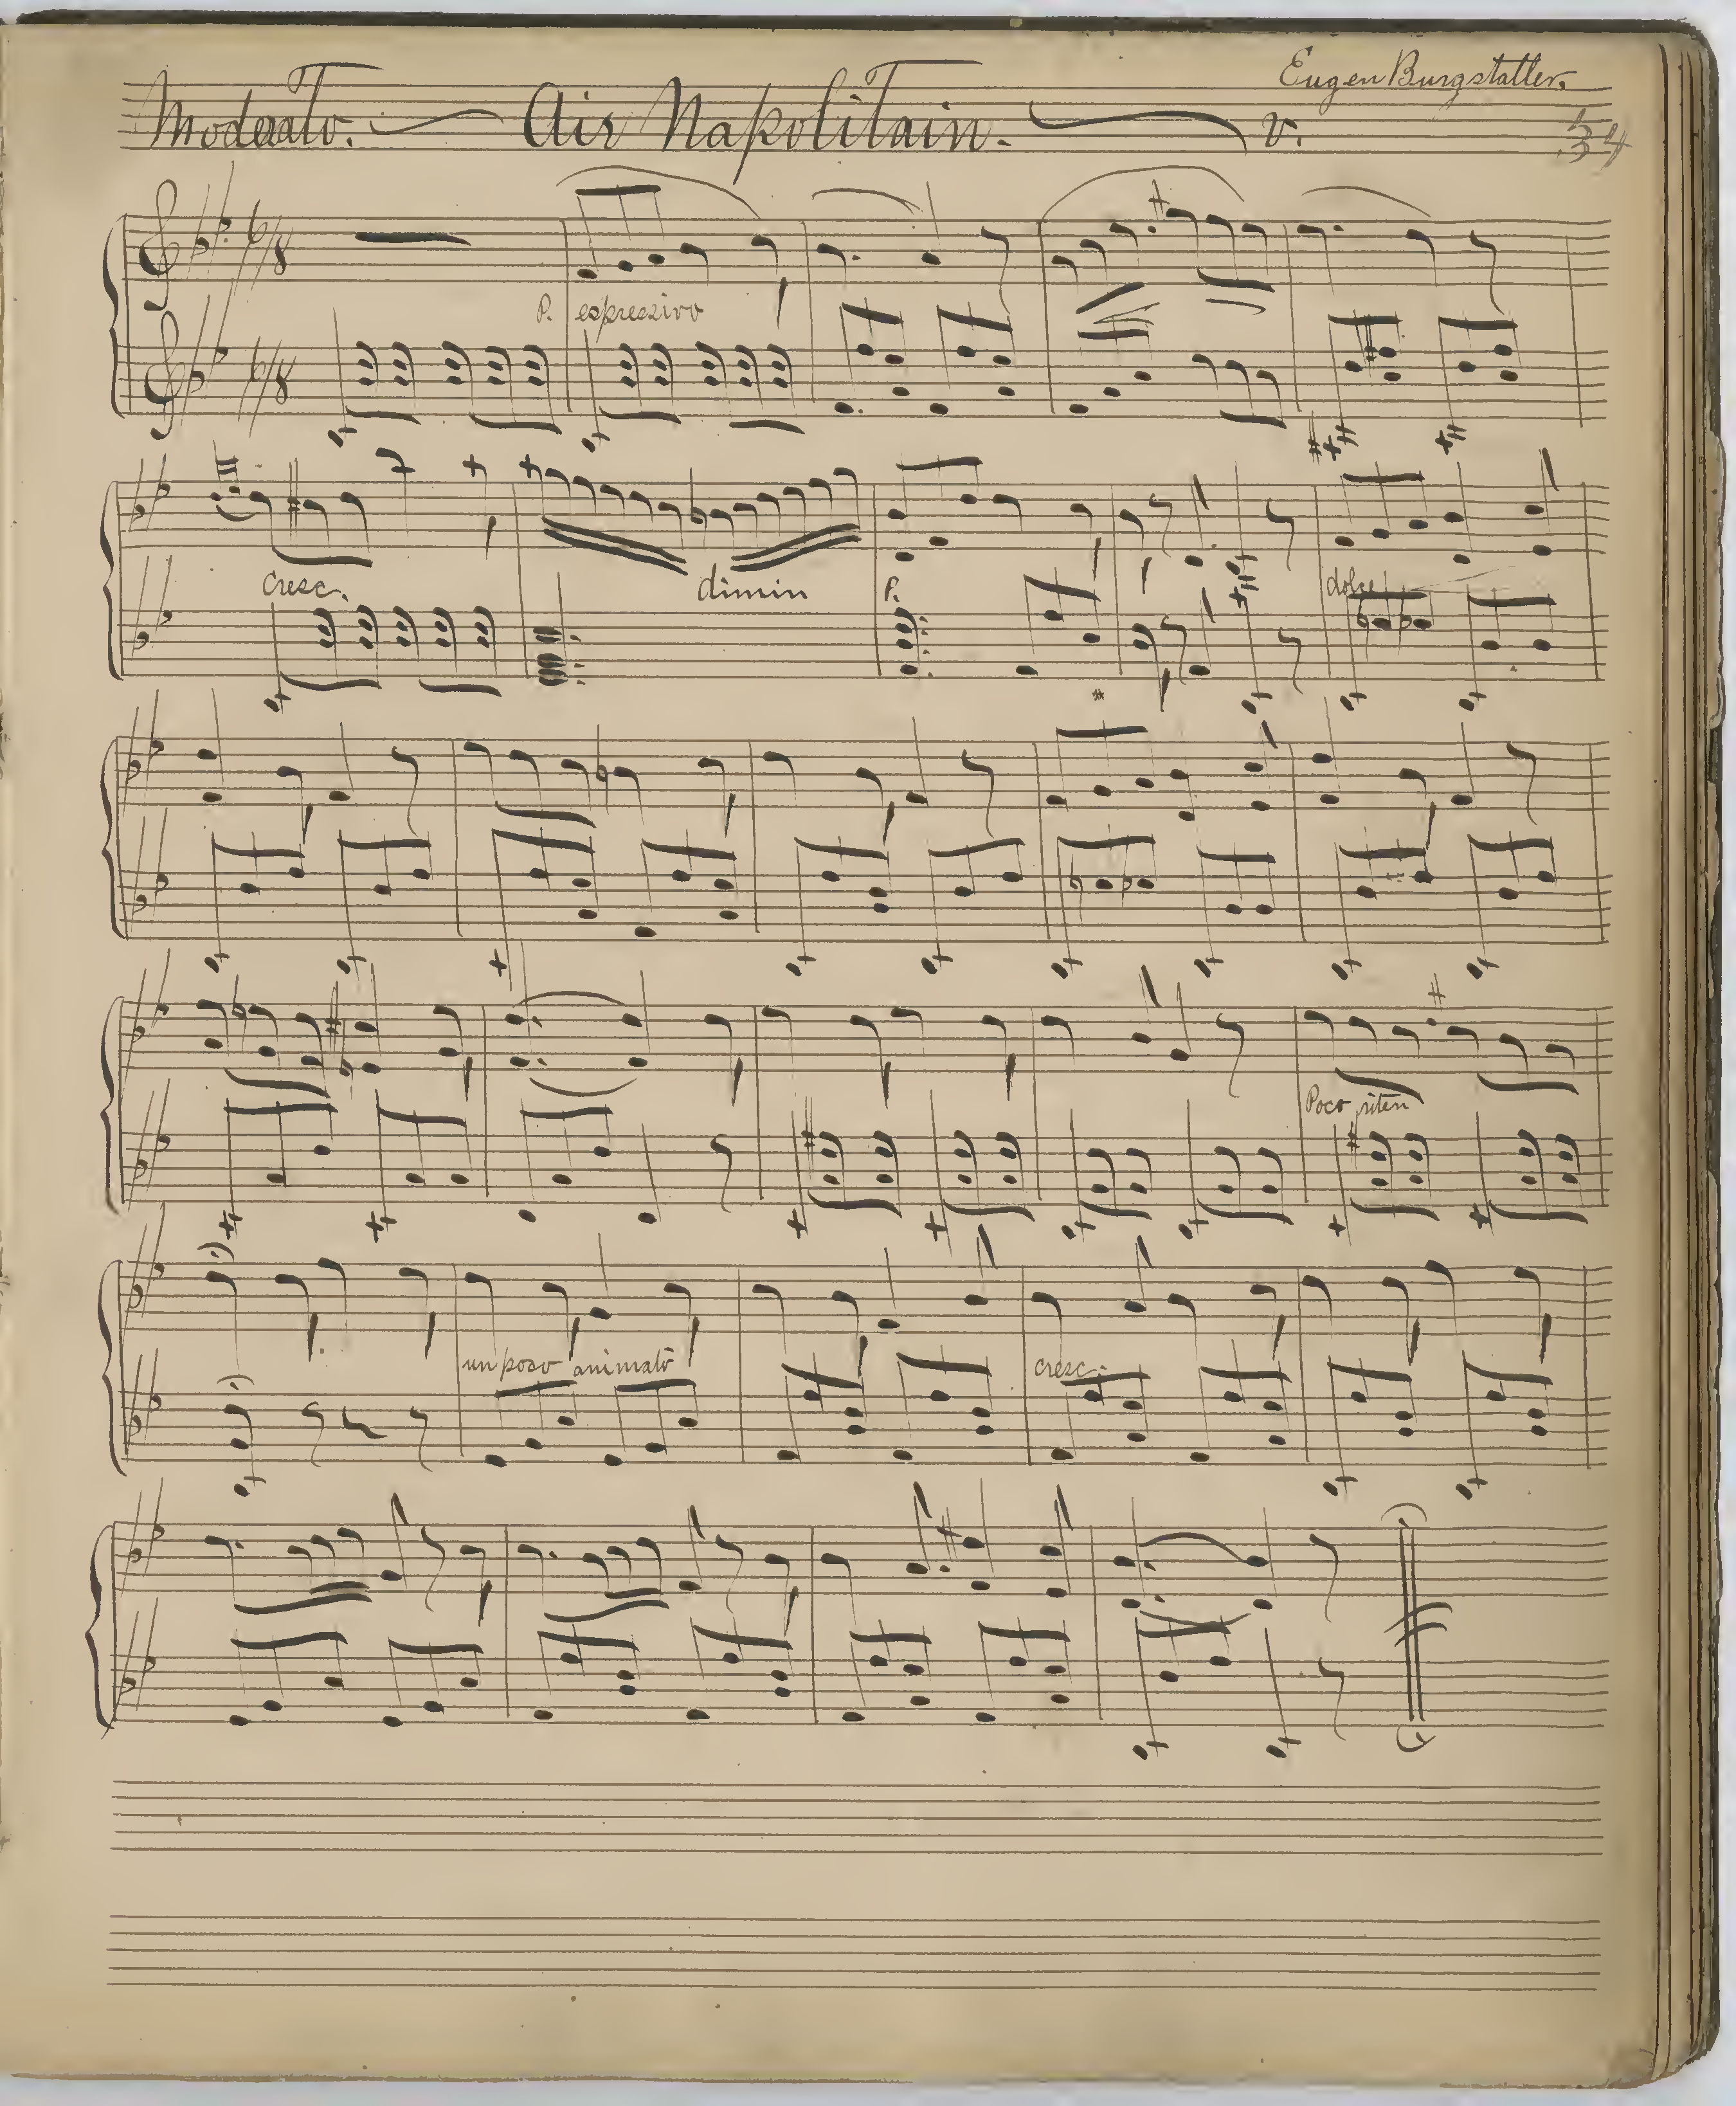 Eugen Burgstaller.
Moderato. Air Napolitain. V.
34
6/8
P. espressivo
6/8
cresc. dimin P. dolce
Poco riten
un poco animato cresc.